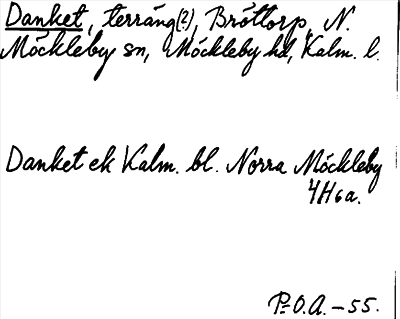 Danket, terräng(2), Bröttorp, N.
Möckleby sn, Möckleby hd, Kalm. l.
Danket ek Kalm. bl. Norra Möckleby
4H6a.
P-O.A.-55.